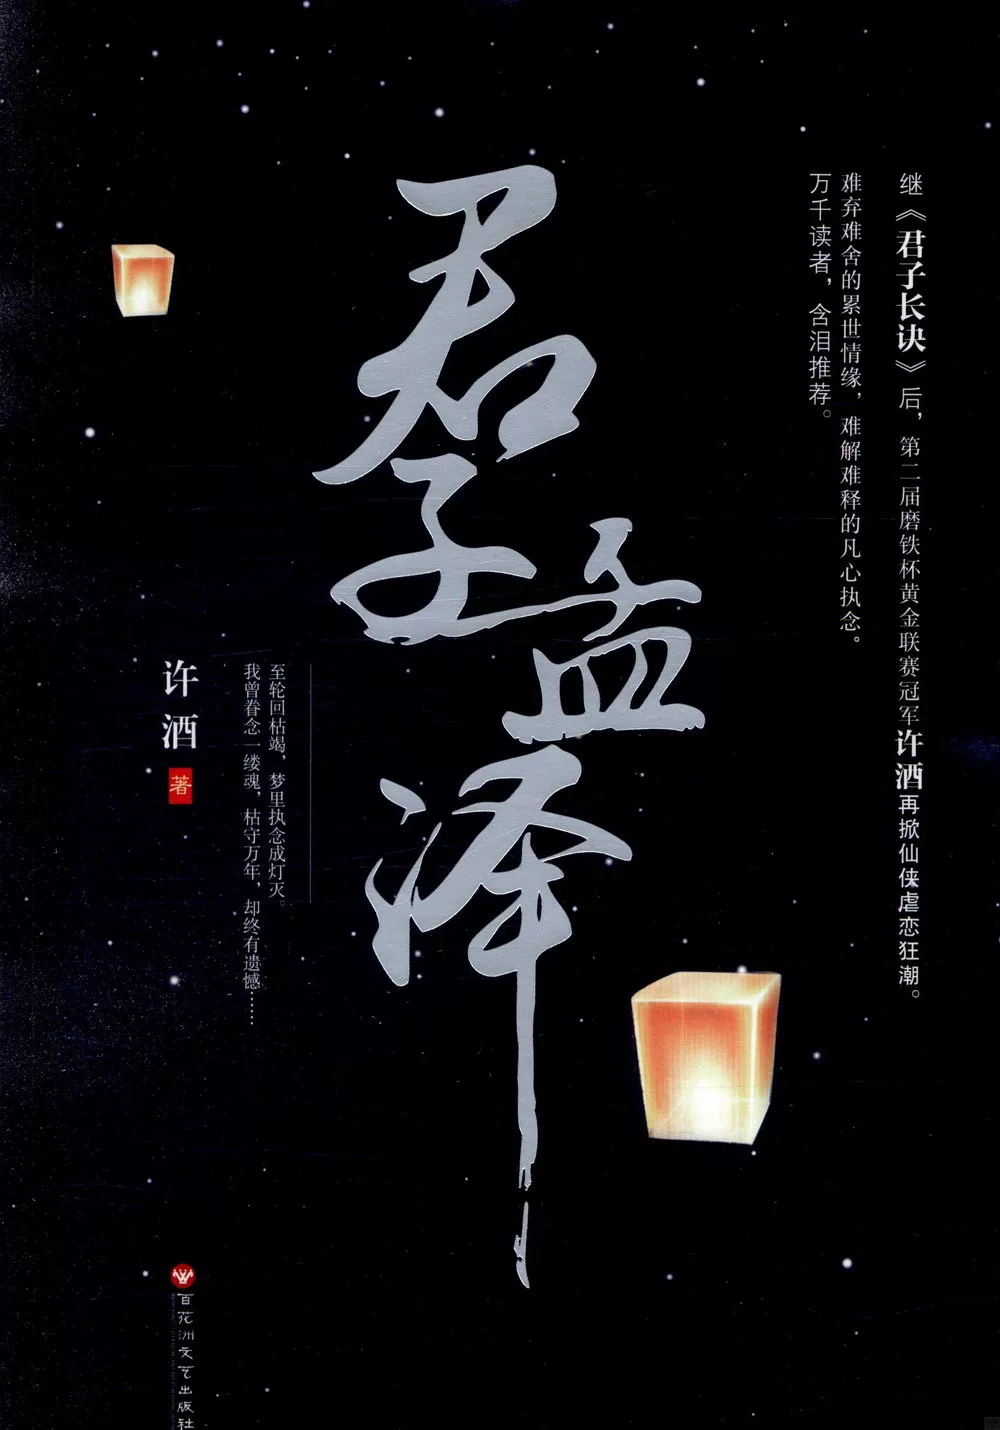 继《君子长诀》后，第二届磨铁杯黄金联赛冠军许酒再掀仙侠虐恋狂潮。
难弃难舍的累世情缘，难解难释的凡心执念。
万千读者，含泪推荐。
君子孟泽
至轮回枯竭，梦里执念成灯灭。
我曾眷念一缕魂，枯守万年，却终有遗憾……
许酒
著
百花洲文艺出版社